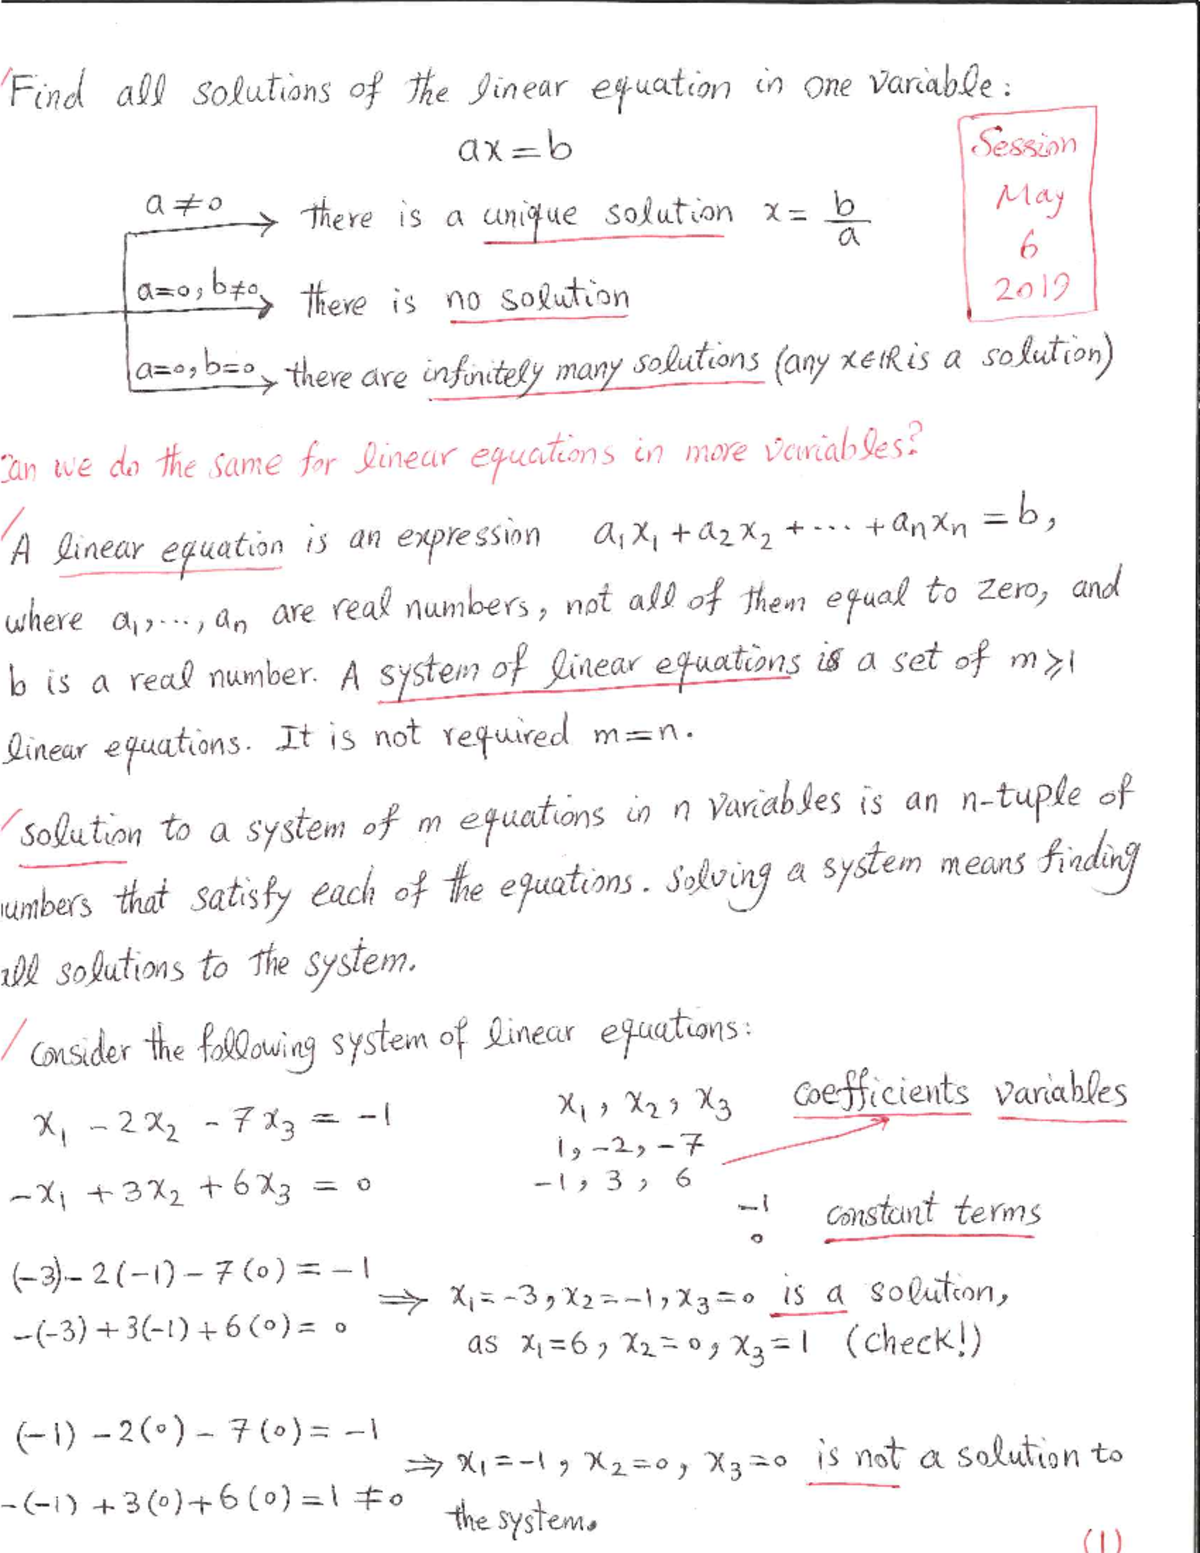 Find all solutions of the linear equation in one variable:
ax = b
Session
May
6
2019
a ≠ 0 → there is a unique solution x = b/a
a=0, b≠0 → there is no solution
a=0, b=0 → there are infinitely many solutions (any x∈ℝ is a solution)
Can we do the same for linear equations in more variables?
A linear equation is an expression a₁x₁ + a₂x₂ + ··· + aₙxₙ = b,
where a₁, ..., aₙ are real numbers, not all of them equal to zero, and
b is a real number. A system of linear equations is a set of m ≥ 1
linear equations. It is not required m = n.
solution to a system of m equations in n variables is an n-tuple of
numbers that satisfy each of the equations. Solving a system means finding
all solutions to the system.
Consider the following system of linear equations:
x₁ - 2x₂ - 7x₃ = -1
-x₁ + 3x₂ + 6x₃ = 0
x₁, x₂, x₃ coefficients variables
1, -2, -7
-1, 3, 6
-1
0
constant terms
(-3) - 2(-1) - 7(0) = -1
-(-3) + 3(-1) + 6(0) = 0
⇒ x₁ = -3, x₂ = -1, x₃ = 0 is a solution,
as x₁ = 6, x₂ = 0, x₃ = 1 (check!)
(-1) - 2(0) - 7(0) = -1
-(-1) + 3(0) + 6(0) = 1 ≠ 0
⇒ x₁ = -1, x₂ = 0, x₃ = 0 is not a solution to
the system.
(1)